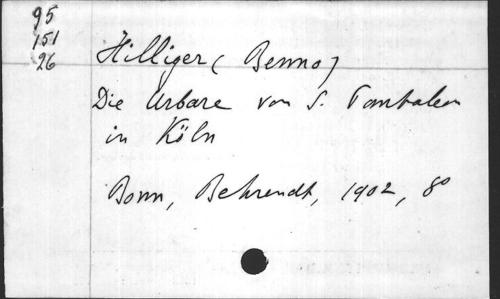 95
151
26
Hilliger (Benno)
Die Urbare von S. Pantaleon
in Köln
Bonn, Behrendt, 1902, 8°